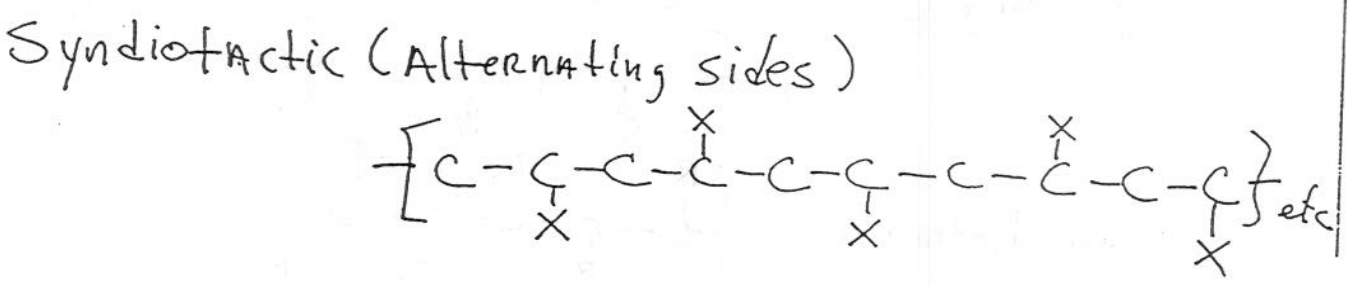 Syndiotactic (Alternating sides)
X X
-[C-C-C-C-C-C-C-C-C-C}etc
X X X